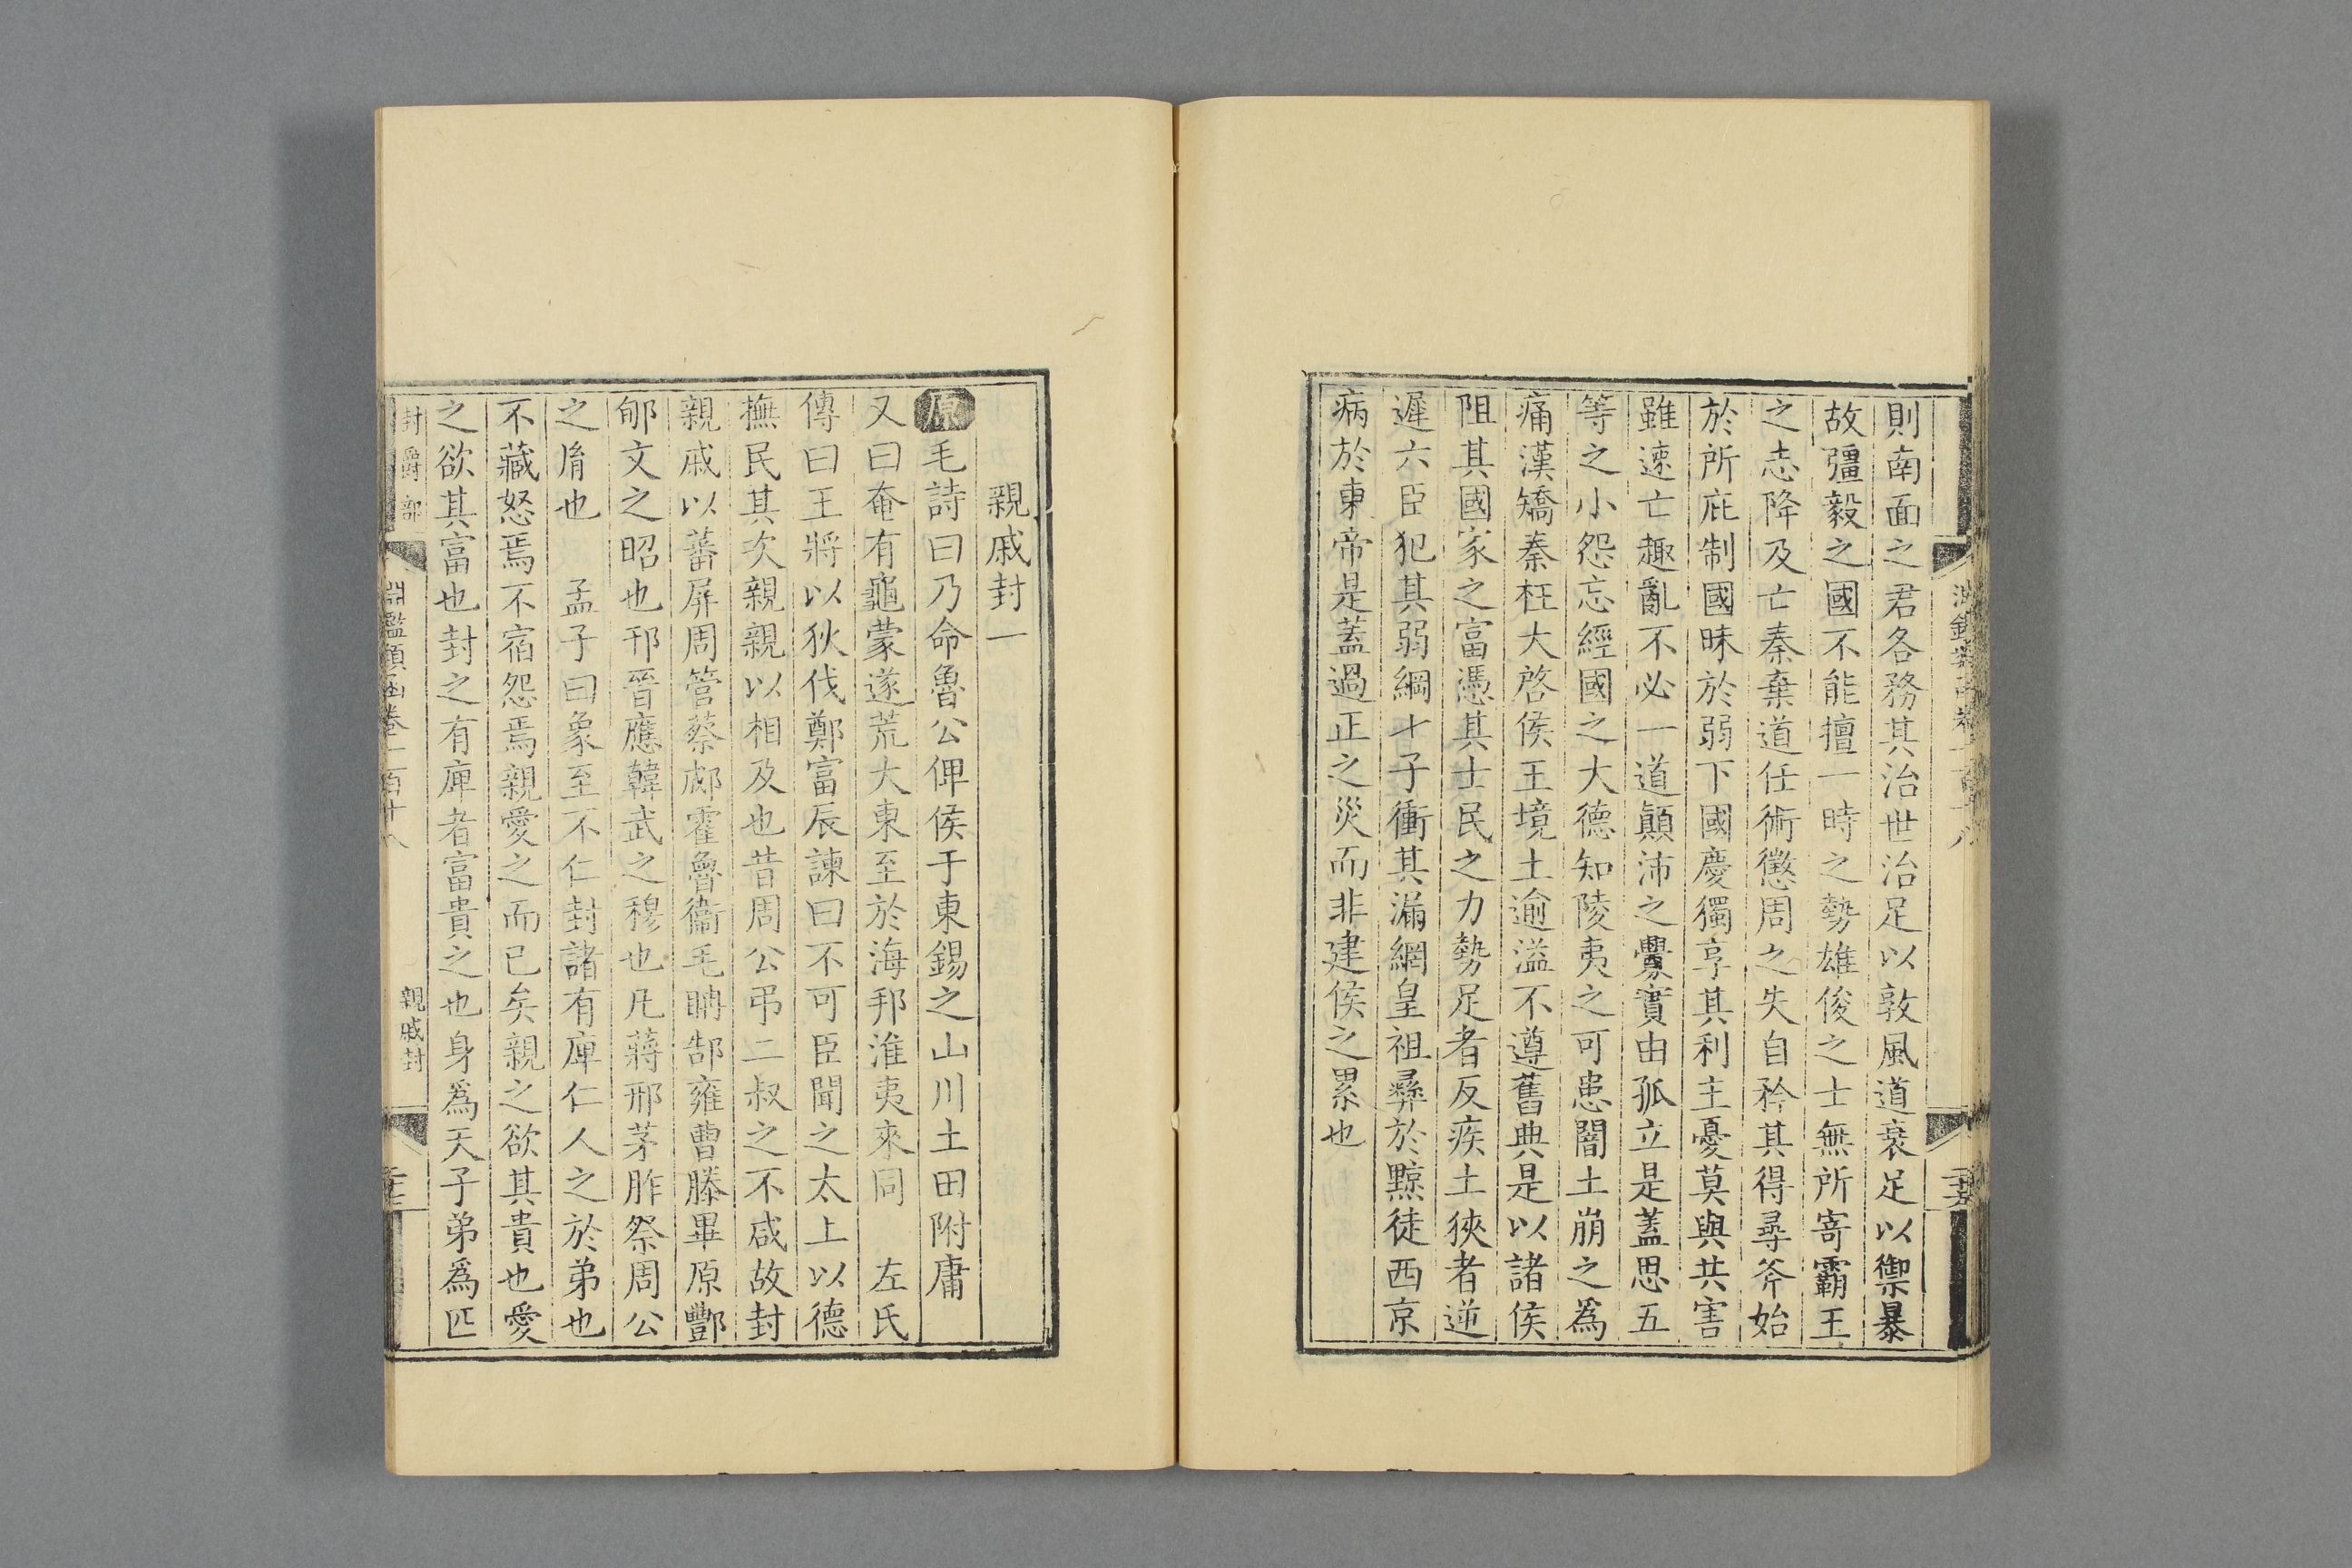 則南面之君各務其治世治足以敦風道衰足以禦暴
故彊毅之國不能擅一時之勢雄俊之士無所寄霸王
之志降及亡秦棄道任術懲周之失自矜其得尋斧始
於所庇制國昧於弱下國慶獨享其利主憂莫與共害
雖速亡趣亂不必一道顛沛之釁實由孤立是蓋思五
等之小怨忘經國之大德知陵夷之可患闇土崩之為
痛漢矯秦枉大啓侯王境土逾溢不遵舊典是以諸侯
阻其國家之富憑其士民之力勢足者反疾土狹者逆
遲六臣犯其弱綱七子衝其漏網皇祖彝於黥徒西京
病於東帝是蓋過正之災而非建侯之累也
親戚封一
原毛詩曰乃命魯公俾侯于東錫之山川土田附庸
又曰奄有龜蒙遂荒大東至於海邦淮夷來同 左氏
傳曰王將以狄伐鄭富辰諫曰不可臣聞之太上以德
撫民其次親親以相及也昔周公弔二叔之不咸故封
親戚以蕃屏周管蔡郕霍魯衞毛聃郜雍曹滕畢原酆
郇文之昭也邗晉應韓武之穆也凡蔣邢茅胙祭周公
之胤也 孟子曰象至不仁封諸有庳仁人之於弟也
不藏怒焉不宿怨焉親愛之而已矣親之欲其貴也愛
之欲其富也封之有庳者富貴之也身爲天子弟爲匹
封爵部 淵鑑類函卷一百廿八 親戚封